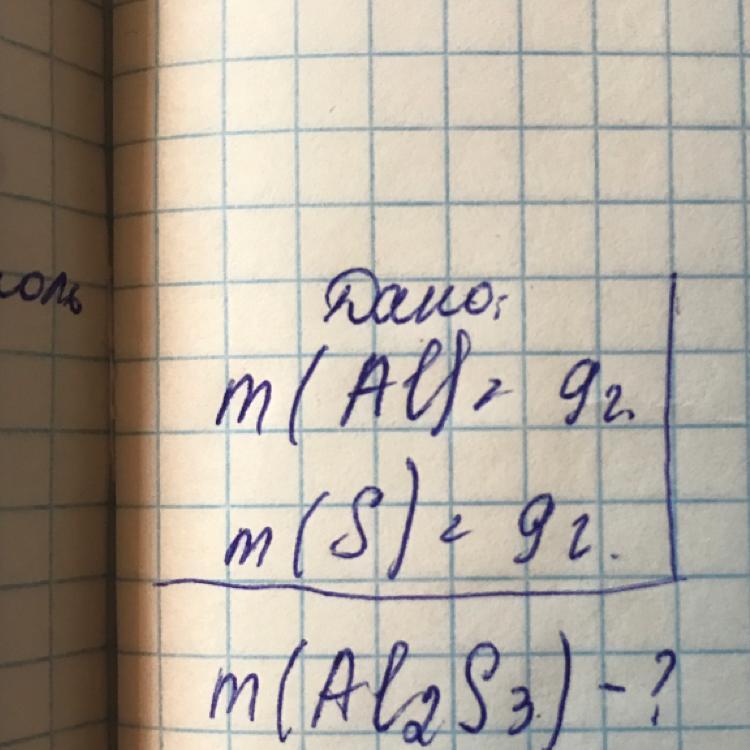 Дано:
m(Al) = 9г.
m(S) = 9г.
m(Al2S3) - ?